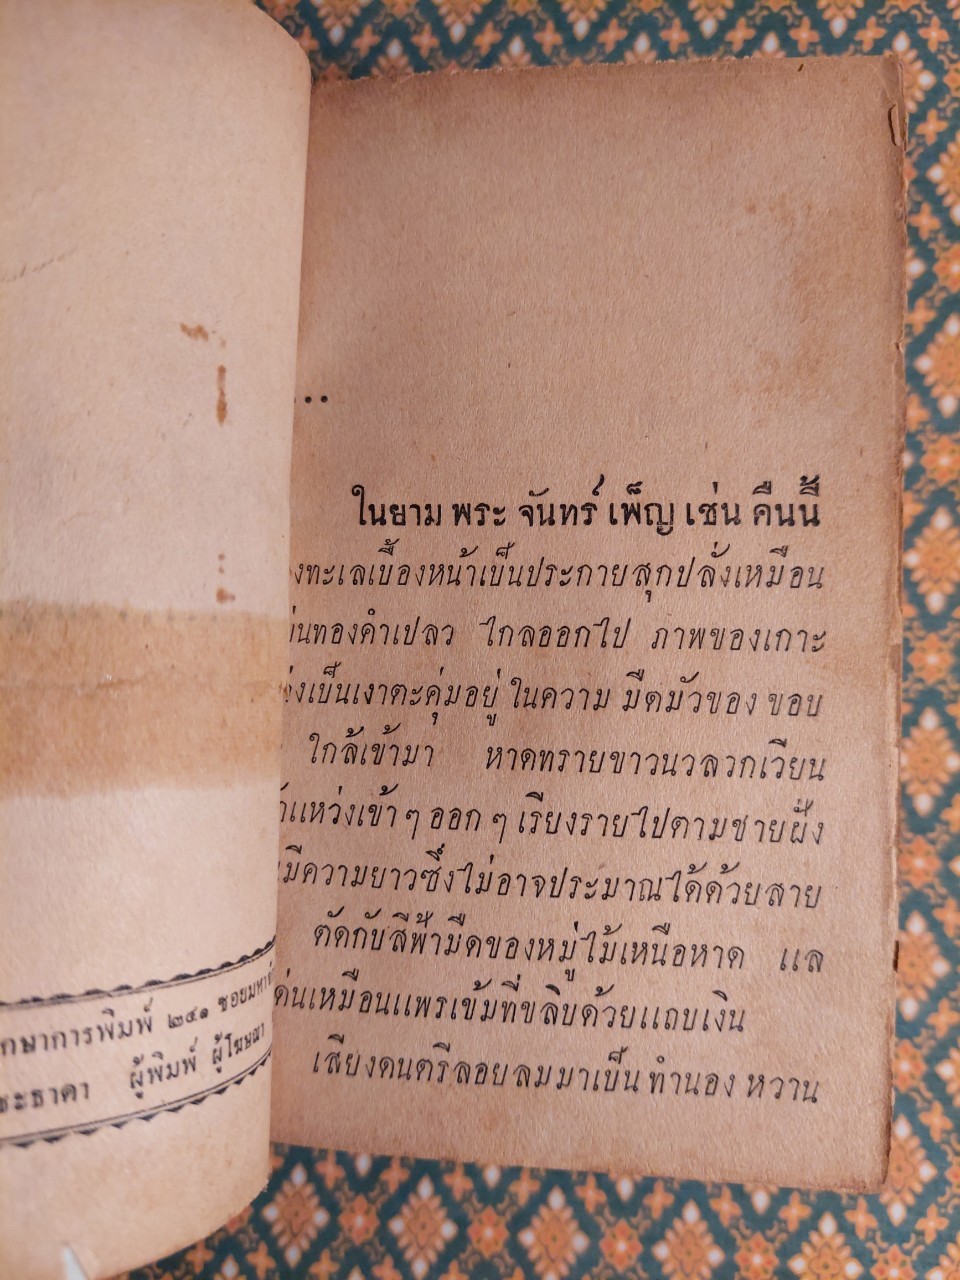 ...
ในยาม พระ จันทร์ เพ็ญ เช่น คืนนี้
งทะเลเบื้องหน้าเป็นประกายสุกปลั่งเหมือน
นทองคำเปลว ไกลออกไป ภาพของเกาะ
งเป็นเงาตะคุ่มอยู่ ในความ มืดมัวของ ขอบ
ใกล้เข้ามา หาดทรายขาวนวลวกเวียน
แหว่งเข้า ๆ ออก ๆ เรียงรายไปตามชายฝั่ง
มีความยาวซึ่งไม่อาจประมาณได้ด้วยสาย
ตัดกับสีฟ้ามืดของหมู่ไม้เหนือหาด แล
ด่นเหมือนแพรเข้มที่ขลิบด้วยแถบเงิน
เสียงดนตรีลอยลมมาเป็น ทำนอง หวาน
กษาการพิมพ์ ๒๔๑ ซอยมหา
ชะธาดา ผู้พิมพ์ ผู้โฆษณา